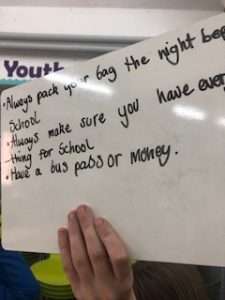 Youth
•Always pack your bag the night bef
School
•Always make sure you have ever
thing for School
•Have a bus pass or Money.